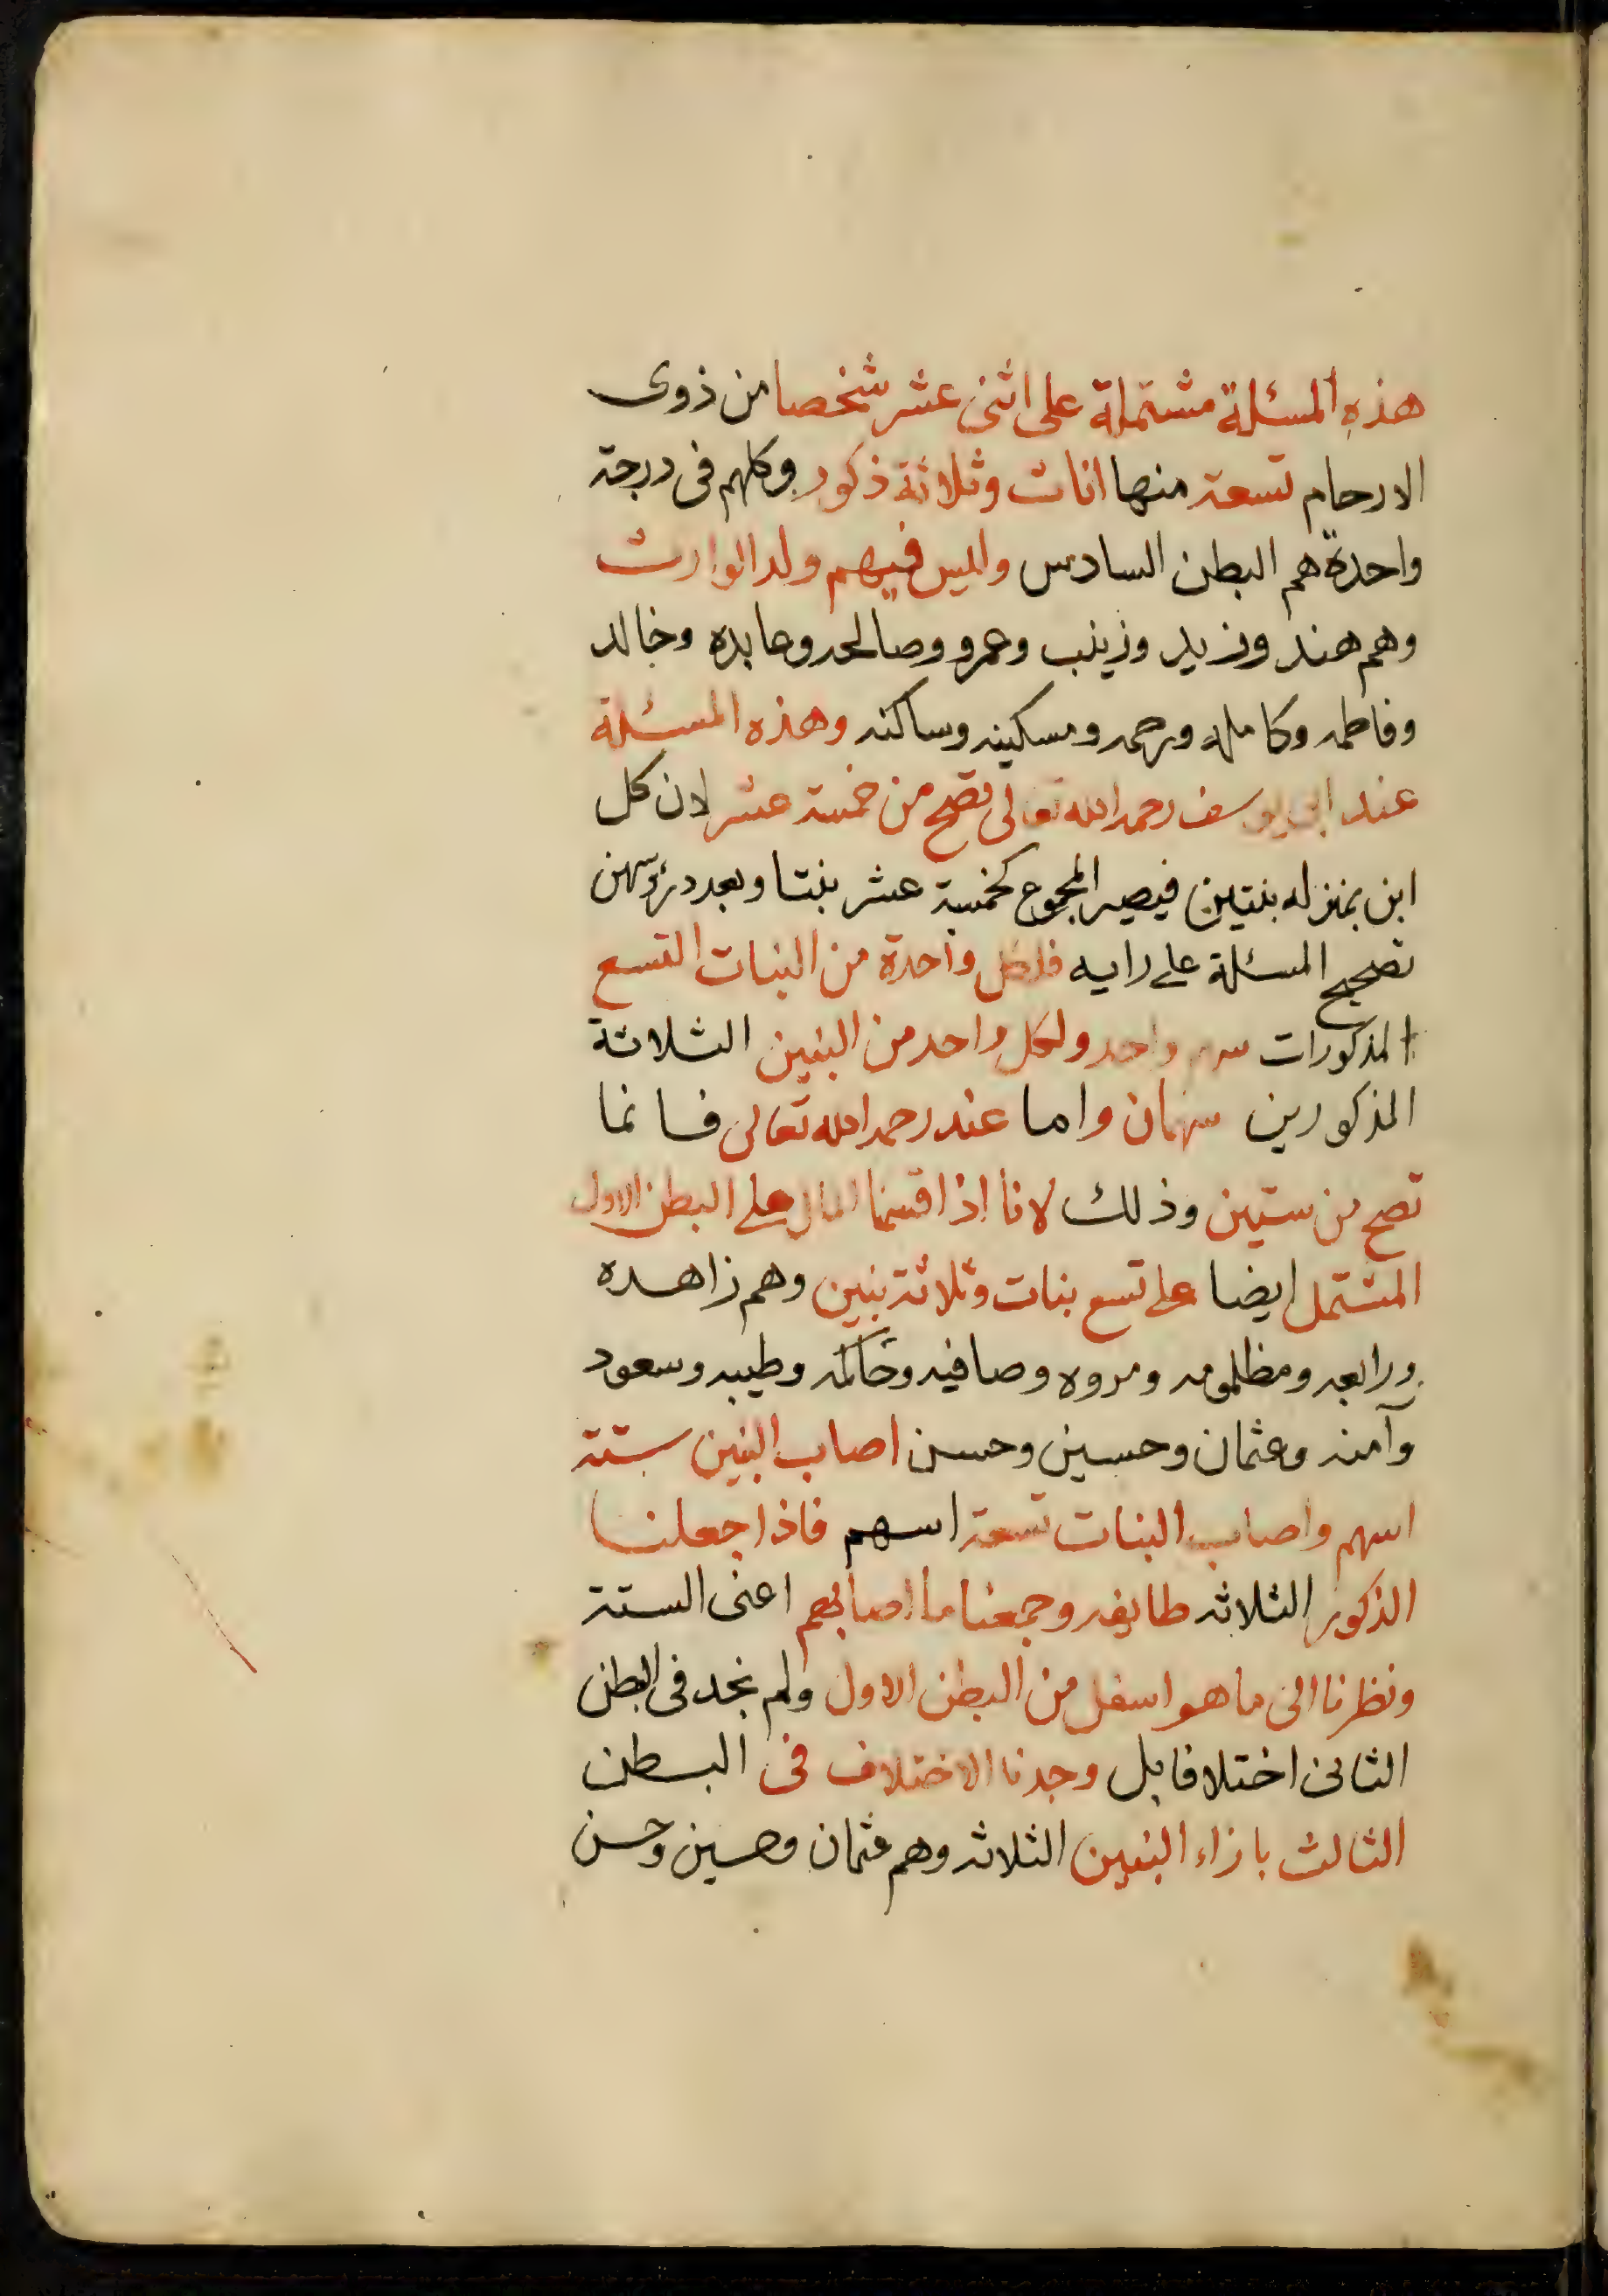 هذه المسئلة مشتملة على اثنى عشر شخصا من ذوى
الارحام تسعة منها اناث وثلاثة ذكور وكلهم فى درجة
واحدة هم البطن السادس وليس فيهم ولد الوارث
وهم هند وزيد وزينب وعمرو وصالحه وعابده وخالد
وفاطمه وكامله ورحمه ومسكينه وساكنه وهذه المسئلة
عند ابى يوسف رحمه الله تعالى تصح من خمسة عشر لان كل
ابن بمنزله بنتين فيصير المجموع كخمسة عشر بنتا وبعدد رؤسهن
تصحيح المسئلة على رايه فلكل واحدة من البنات التسع
المذكورات سهم واحد ولكل واحد من البنين الثلاثة
المذكورين سهمان واما عند رحمه الله تعالى فانما
تصح من ستين وذلك لانا اذا قسمنا المال على البطن الاول
المشتمل ايضا على تسع بنات وثلاثة بنين وهم زاهده
ورابعه ومظلومه ومروه وصافيه وحاكمه وطيبه وسعود
وآمنه وعثمان وحسين وحسن اصاب البنين ستة
اسهم واصاب البنات تسعة اسهم فاذا جعلنا
الذكور الثلاثه طايفه وجمعنا ما اصابهم اعنى الستة
ونظرنا الى ما هو اسفل من البطن الاول ولم نجد فى البطن
الثانى اختلافا بل وجدنا الاختلاف فى البطن
الثالث بازاء البنين الثلاثه وهم عثمان وحسين وحسن